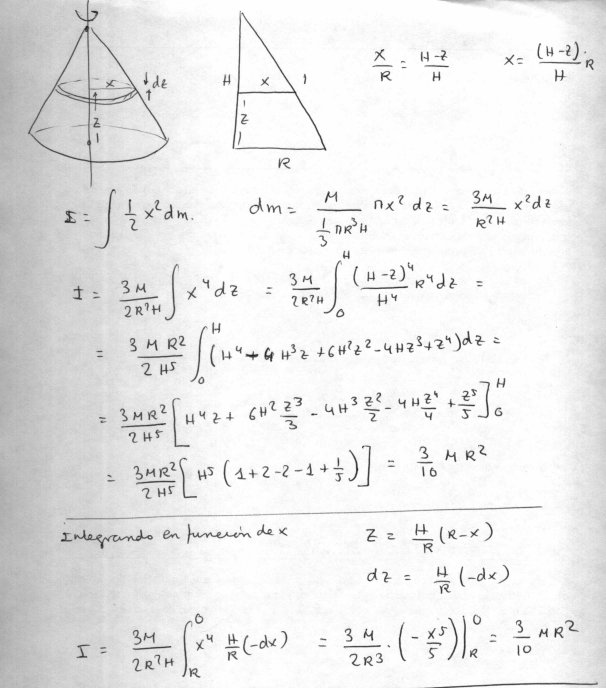 x dz
z
1
H x 1
z
1
R
x/R = (H-z)/H    x = (H-z)/H · R
I = ∫ 1/2 x² dm.    dm = M/(1/3 πR³H) πx² dz = 3M/(R²H) x² dz
I = 3M/(2R²H) ∫ x⁴ dz = 3M/(2R²H) ∫₀ᴴ (H-z)⁴/H⁴ R⁴ dz =
= 3MR²/(2H⁵) ∫₀ᴴ (H⁴ - 4H³z + 6H²z² - 4Hz³ + z⁴) dz =
= 3MR²/(2H⁵) [H⁴z + 6H² z³/3 - 4H³ z²/2 - 4H z⁴/4 + z⁵/5]₀ᴴ
= 3MR²/(2H⁵) [H⁵ (1+2-2-1+1/5)] = 3/10 MR²
Integrando en función de x    z = H/R (R-x)
dz = H/R (-dx)
I = 3M/(2R²H) ∫_R^0 x⁴ H/R (-dx) = 3M/(2R³) · (-x⁵/5)|_R^0 = 3/10 MR²